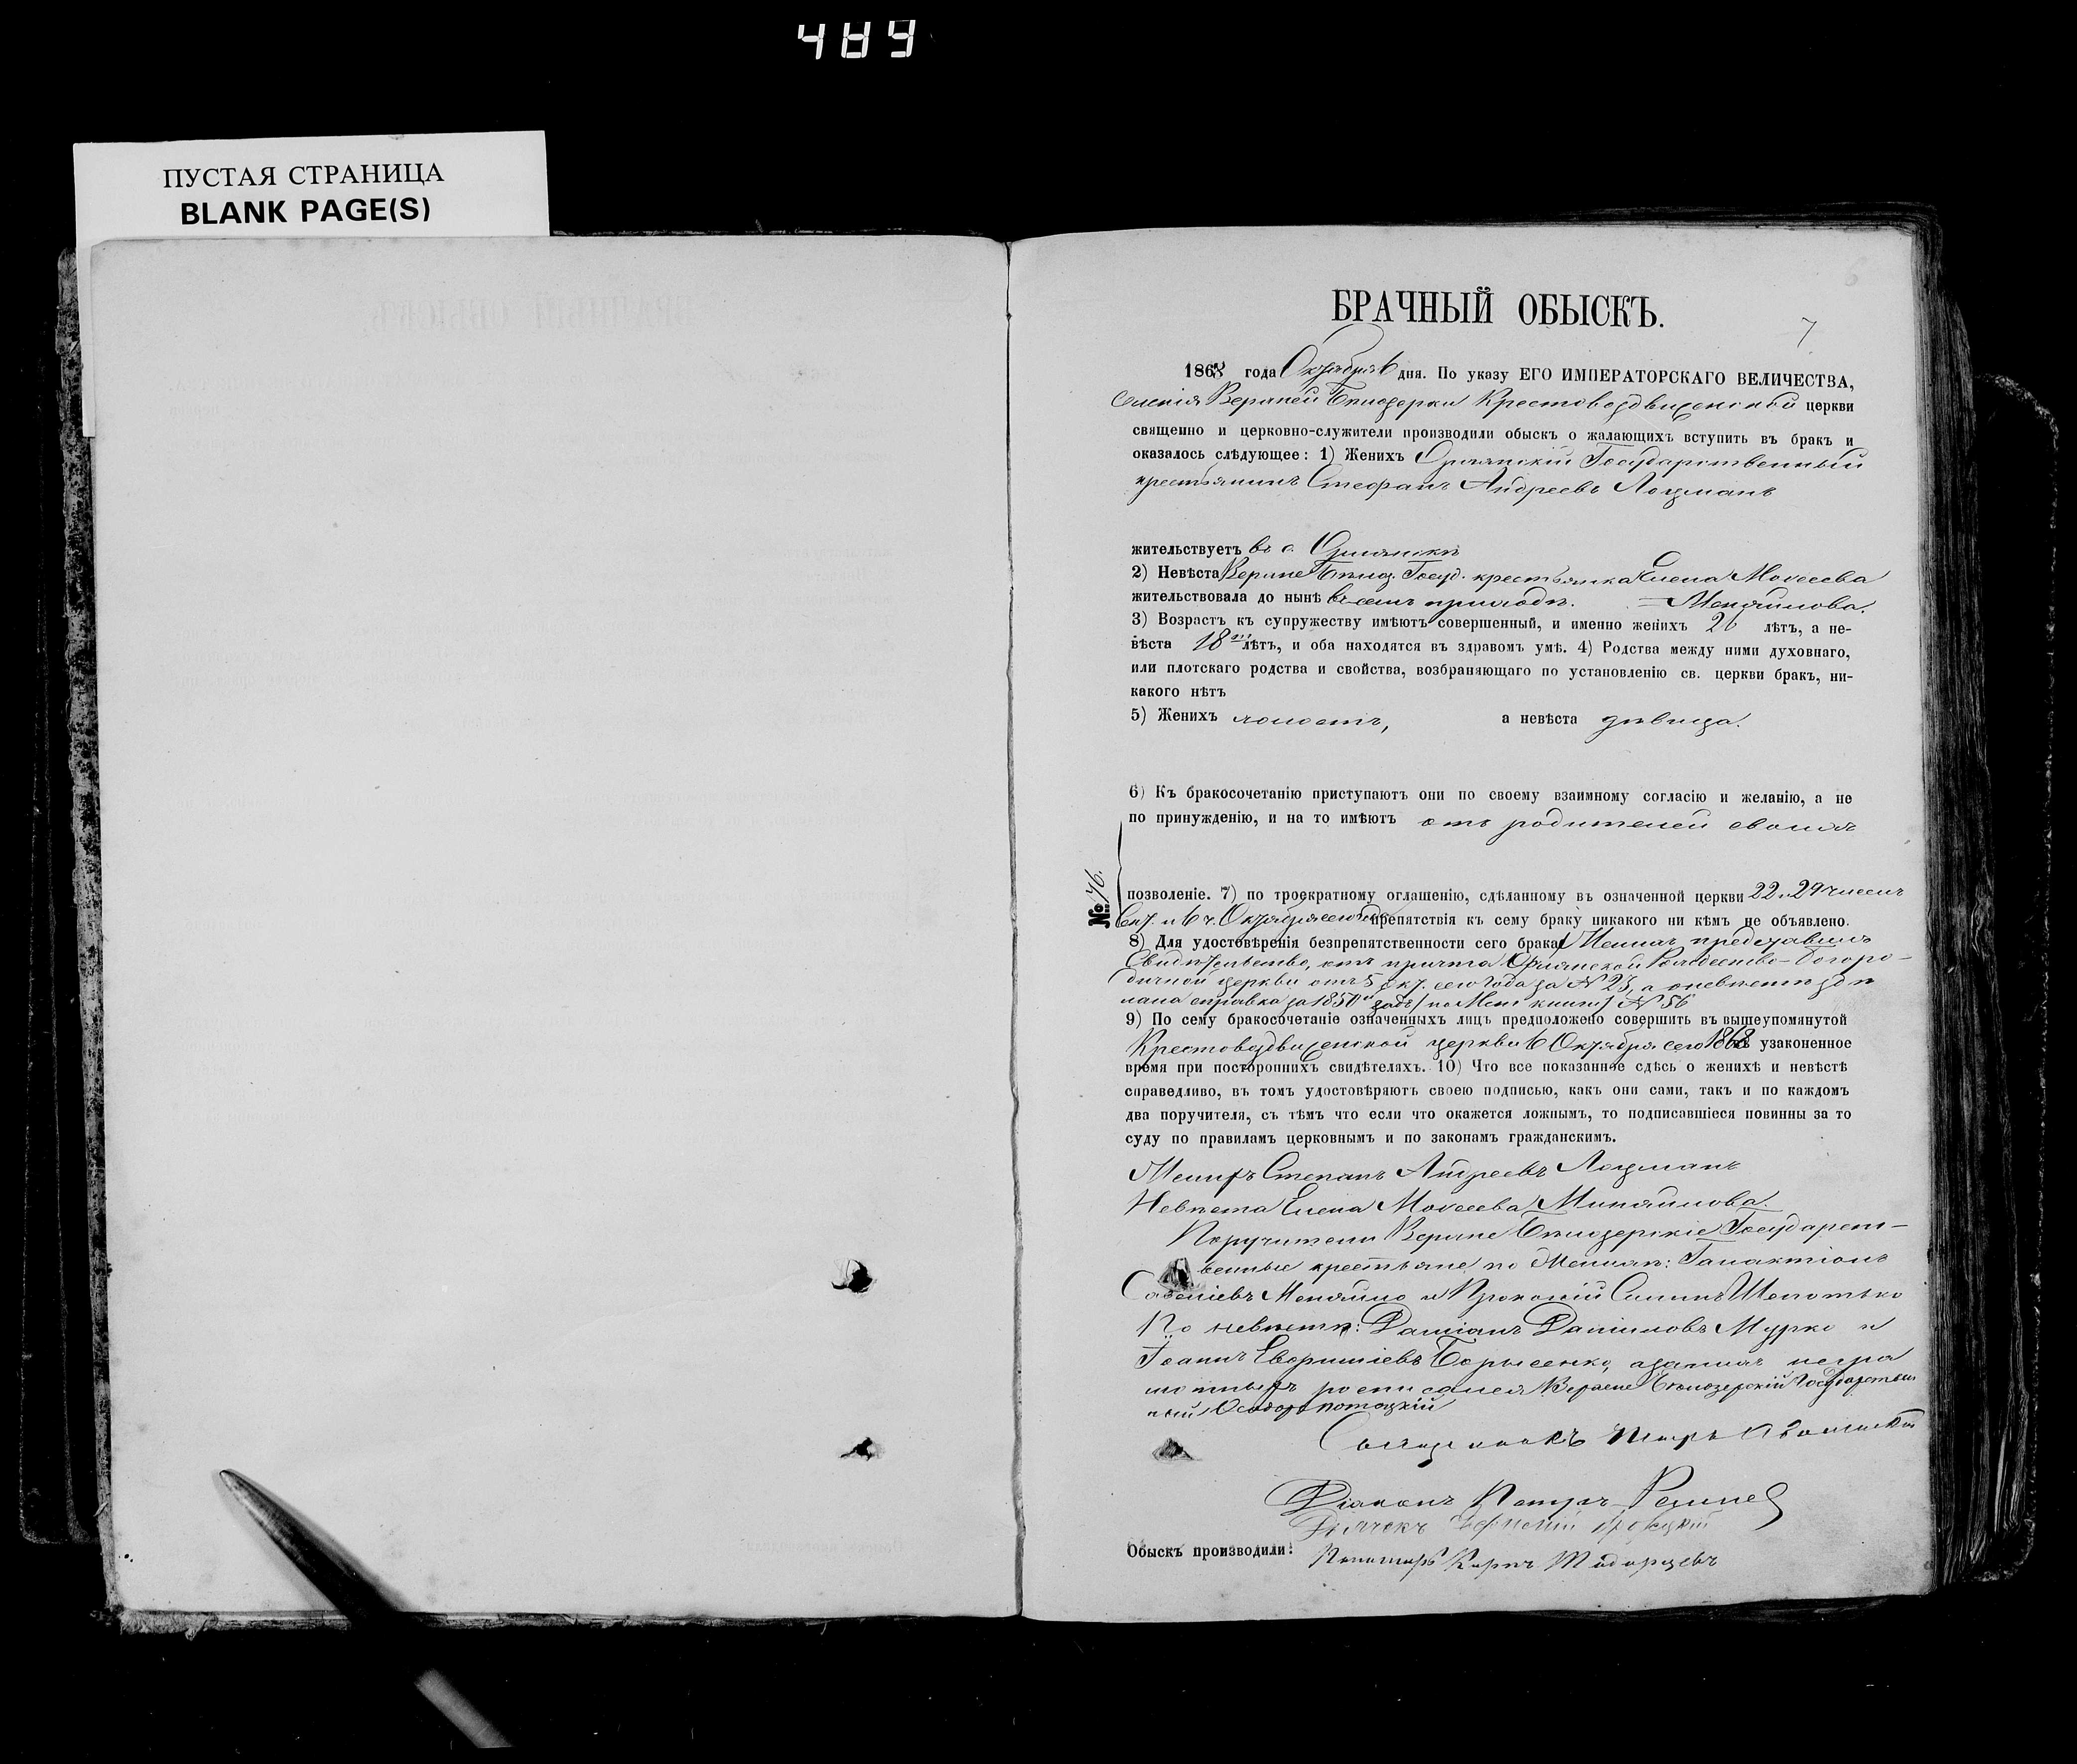 489
ПУСТАЯ СТРАНИЦА
BLANK PAGE(S)
6
БРАЧНЫЙ ОБЫСКЪ.
7
1868 года Октября 6 дня. По указу ЕГО ИМПЕРАТОРСКАГО ВЕЛИЧЕСТВА,
Селенія Верхней Бѣлозерки Крестовоздвиженской церкви
священно и церковно-служители производили обыскъ о жалающихъ вступить въ бракъ и
оказалось слѣдующее: 1) Женихъ Государственный
крестьянинъ Стефанъ Андреевъ Лоцманъ
жительствуетъ въ с.
2) Невѣста Верхне Бѣлоз. Госуд. крестьянка Елена Моѵсеева
жительствовала до нынѣ въ семъ приходѣ. = Меняйлова.
3) Возрастъ къ супружеству имѣютъ совершенный, и именно женихъ 20 лѣтъ, а не-
вѣста 18 лѣтъ, и оба находятся въ здравомъ умѣ. 4) Родства между ними духовнаго,
или плотскаго родства и свойства, возбраняющаго по установленію св. церкви бракъ, ни-
какого нѣтъ
5) Женихъ холостъ, а невѣста дѣвица.
6) Къ бракосочетанію приступаютъ они по своему взаимному согласію и желанію, а не
по принужденію, и на то имѣютъ отъ родителей своихъ
№ 46.
позволеніе. 7) по троекратному оглашенію, сдѣланному въ означенной церкви 22 и 29 чиселъ
Сент. и 6 ч. Октября сего года препятствія къ сему браку никакого ни кѣмъ не объявлено.
8) Для удостовѣренія безпрепятственности сего брака Женихъ представилъ
Свидѣтельство, отъ причта Рождество-Богоро-
дичной церкви отъ 5 Окт. сего года за № 23, а о невѣстѣ здѣ
лана справка за 1850 годъ по Мет книгѣ № 56
9) По сему бракосочетаніе означенныхъ лицъ предположено совершить въ вышеупомянутой
Крестовоздвиженской церкви 6 Октября сего 1868 въ узаконенное
время при постороннихъ свидѣтеляхъ. 10) Что все показанное сдѣсь о женихѣ и невѣстѣ
справедливо, въ томъ удостовѣряютъ своею подписью, какъ они сами, такъ и по каждомъ
два поручителя, съ тѣмъ что если что окажется ложнымъ, то подписавшіеся повинны за то
суду по правиламъ церковнымъ и по законамъ гражданскимъ.
Женихъ Степанъ Андреевъ Лоцманъ
Невѣста Елена Моѵсеева Миняйлова.
Поручители Верхне Бѣлозерскіе Государст-
венные крестьяне по Женихѣ: Галактіонъ
Савеліевъ Меняйло и Прокопій Шепотько
По невѣстѣ: Даміанъ Даниловъ Мурко и
Іоаннъ Борысенко, а за нихъ негра
мотныхъ росписался Верхне Бѣлозерскій Государствен
ный
Священникъ Петръ
Діаконъ Петръ
Дьячекъ
Обыскъ производили: Пономарь Карпъ